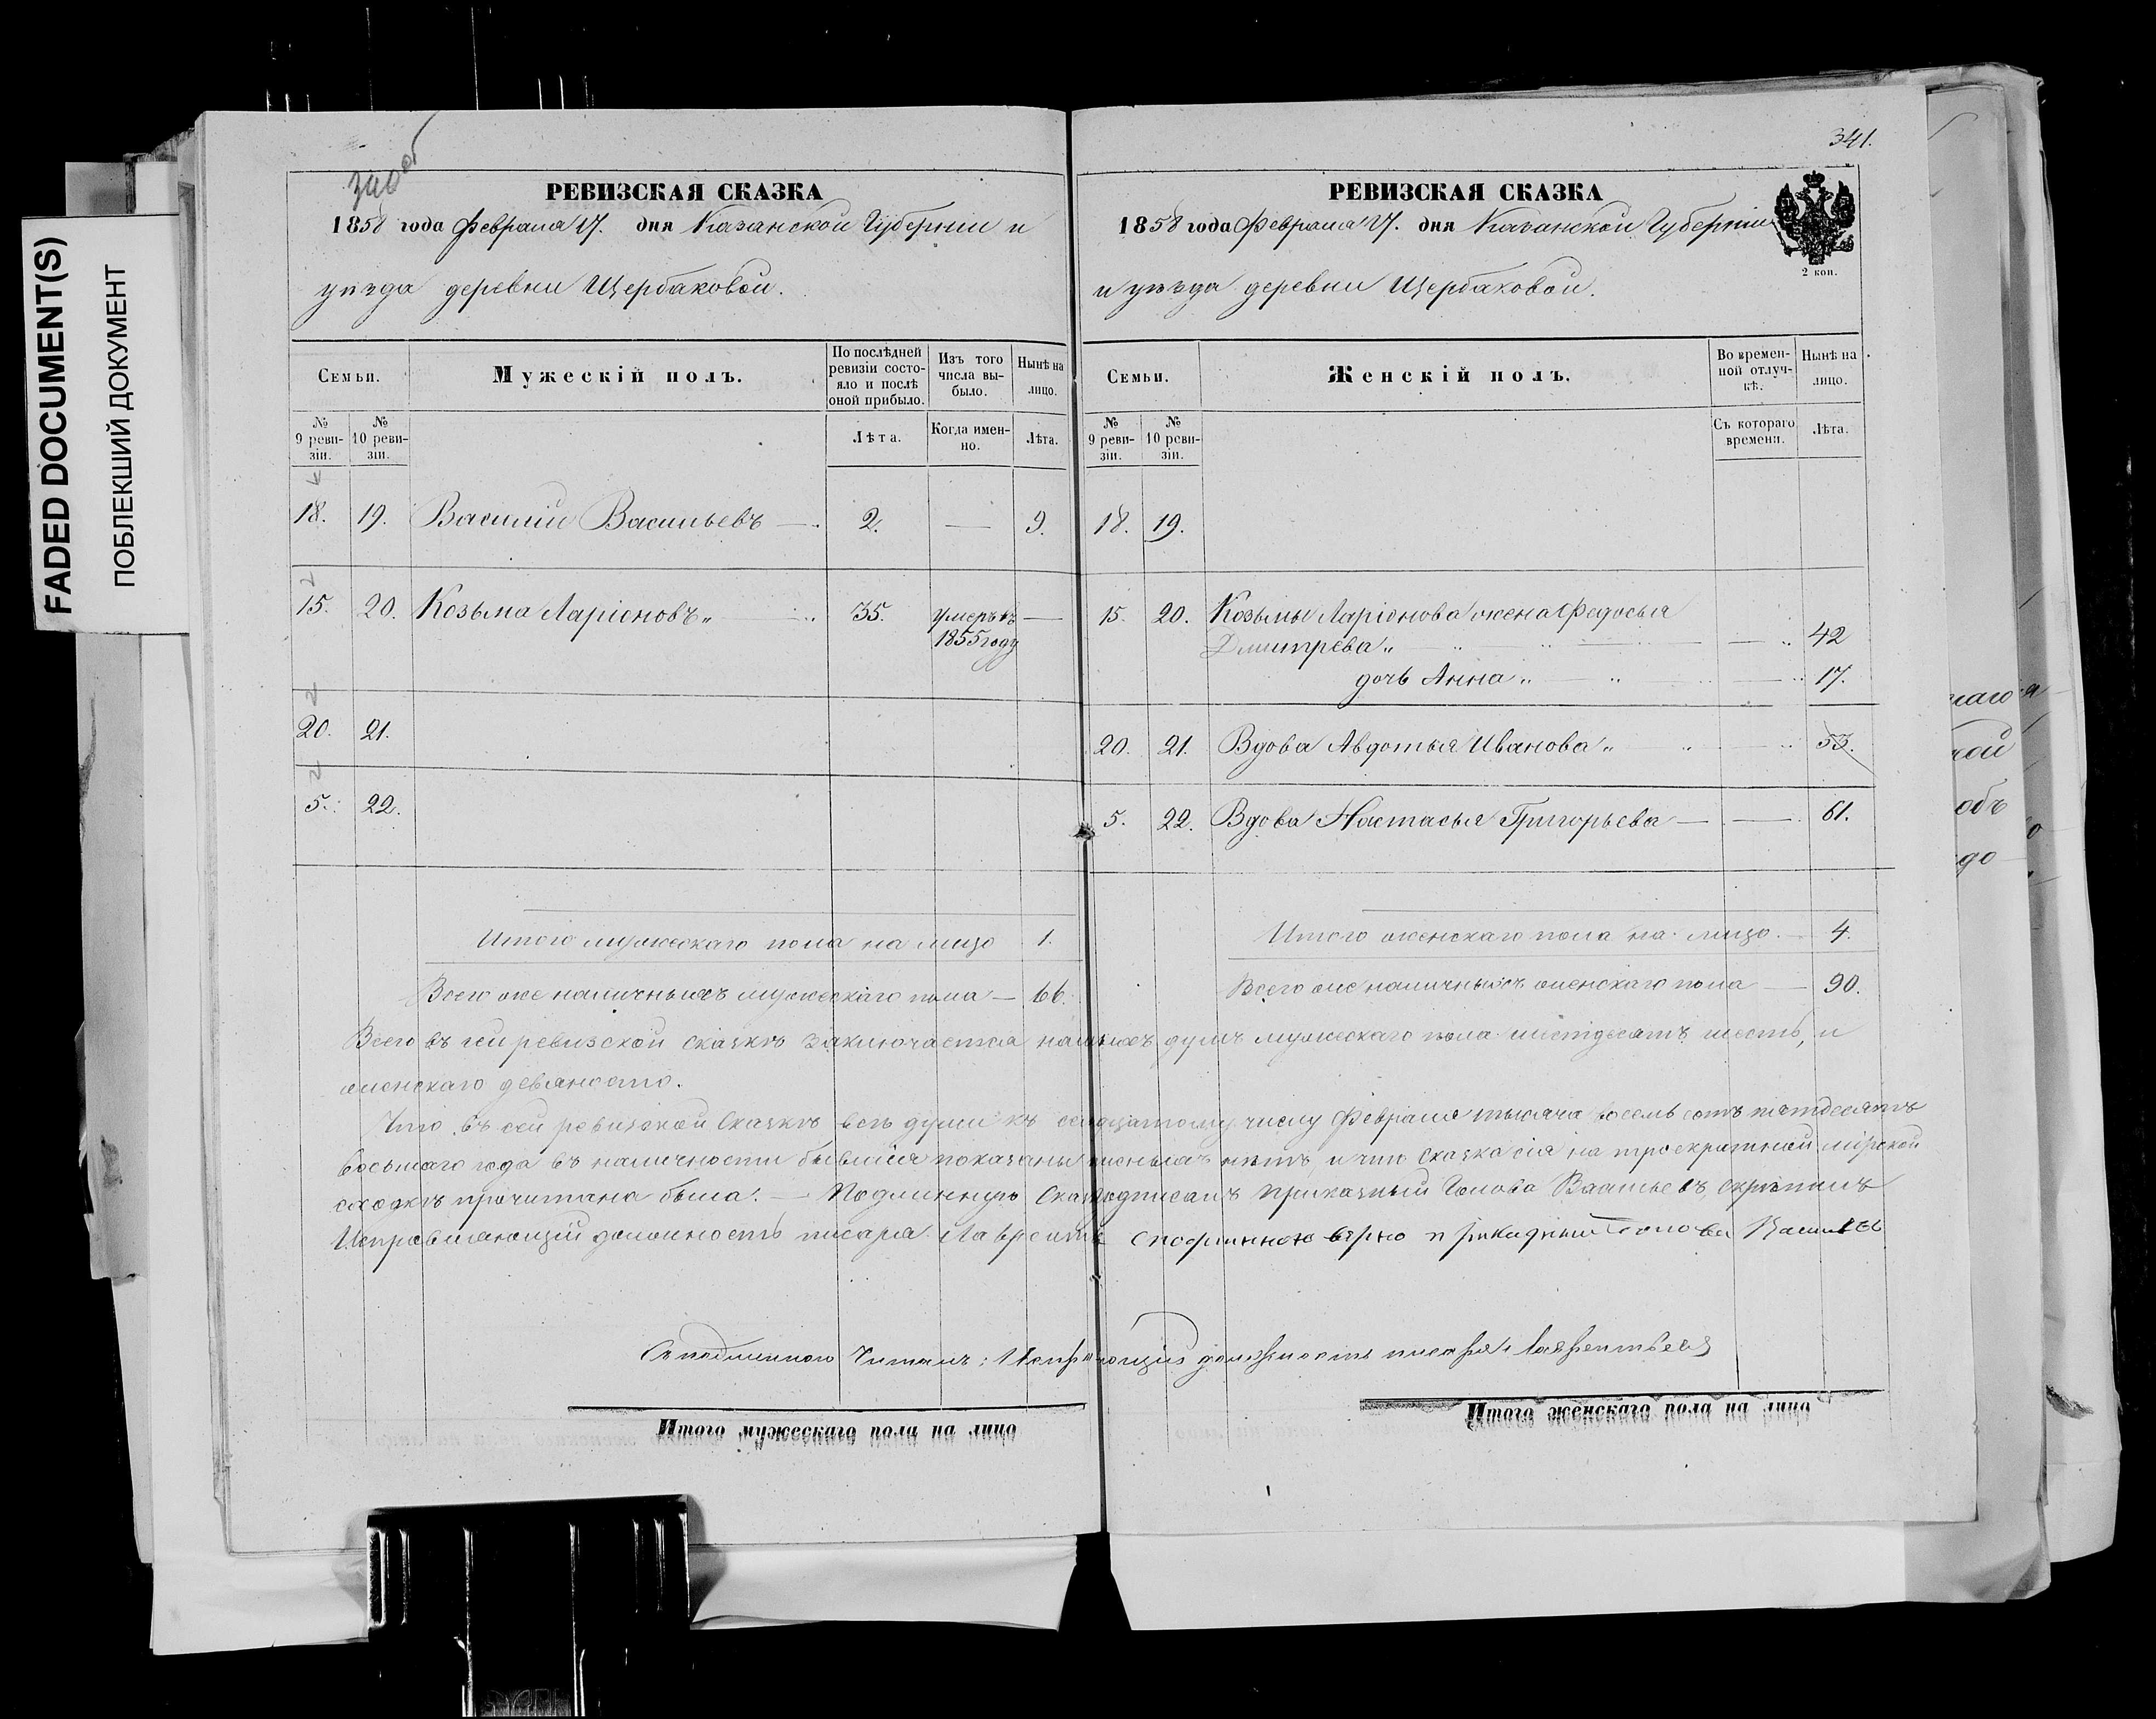 FADED DOCUMENT(S)
ПОБЛЕКШИЙ ДОКУМЕНТ
340 об
РЕВИЗСКАЯ СКАЗКА
1858 года Февраля 17. дня Казанской Губернии и
уѣзда деревни Щербаковой.
Семьи.
Мужескій полъ.
По послѣдней ревизіи состояло и послѣ оной прибыло.
Изъ того числа выбыло.
Нынѣ на лицо.
№ 9 ревизіи.
№ 10 ревизіи.
Лѣта.
Когда именно.
Лѣта.
18. 19. Василий Васильевъ — 2. — 9.
15. 20. Козьма Ларіоновъ 35. умеръ въ —
1855 году
20. 21.
5. 22.
Итого мужескаго пола на лицо 1.
Всего же наличныхъ мужескаго пола — 66.
341.
РЕВИЗСКАЯ СКАЗКА
1858 года Февраля 17. дня Казанской Губерніи
и уѣзда деревни Щербаковой.
2 коп.
Семьи.
Женскій полъ.
Во временной отлучкѣ.
Нынѣ на лицо.
№ 9 ревизіи.
№ 10 ревизіи.
Съ котораго времени.
Лѣта.
18. 19.
15. 20. Козьмы Ларіонова жена Федосья
Дмитрева — 42
дочь Анна — 17.
20. 21. Вдова Авдотья Иванова 53.
5. 22. Вдова Настасья Григорьева — — 61.
Итого женскаго пола на лицо — 4.
Всего же наличныхъ женскаго пола — 90.
Всего въ сей ревизской сказкѣ заключается душъ мужескаго пола шестдесятъ шесть, и
женскаго девяносто.
Что въ сей ревизской Сказкѣ всѣ души къ семнадцатому числу Февраля тысяча восемь сотъ пятдесятъ
восьмаго года въ наличности бывшія показаны и что Сказка сія на троекратной мірской
сходкѣ прочитана была. — Подлинную подписалъ Приказный Голова Васильевъ, скрѣпилъ
Исправляющій должность писаря Лаврентьевъ С подлиннои вѣрно приказный Голова Васильев
Съ подлиннымъ Читалъ: Исправляющій должность писаря Лаврентьевъ
Итого мужескаго пола на лицо
Итого женскаго пола на лицо